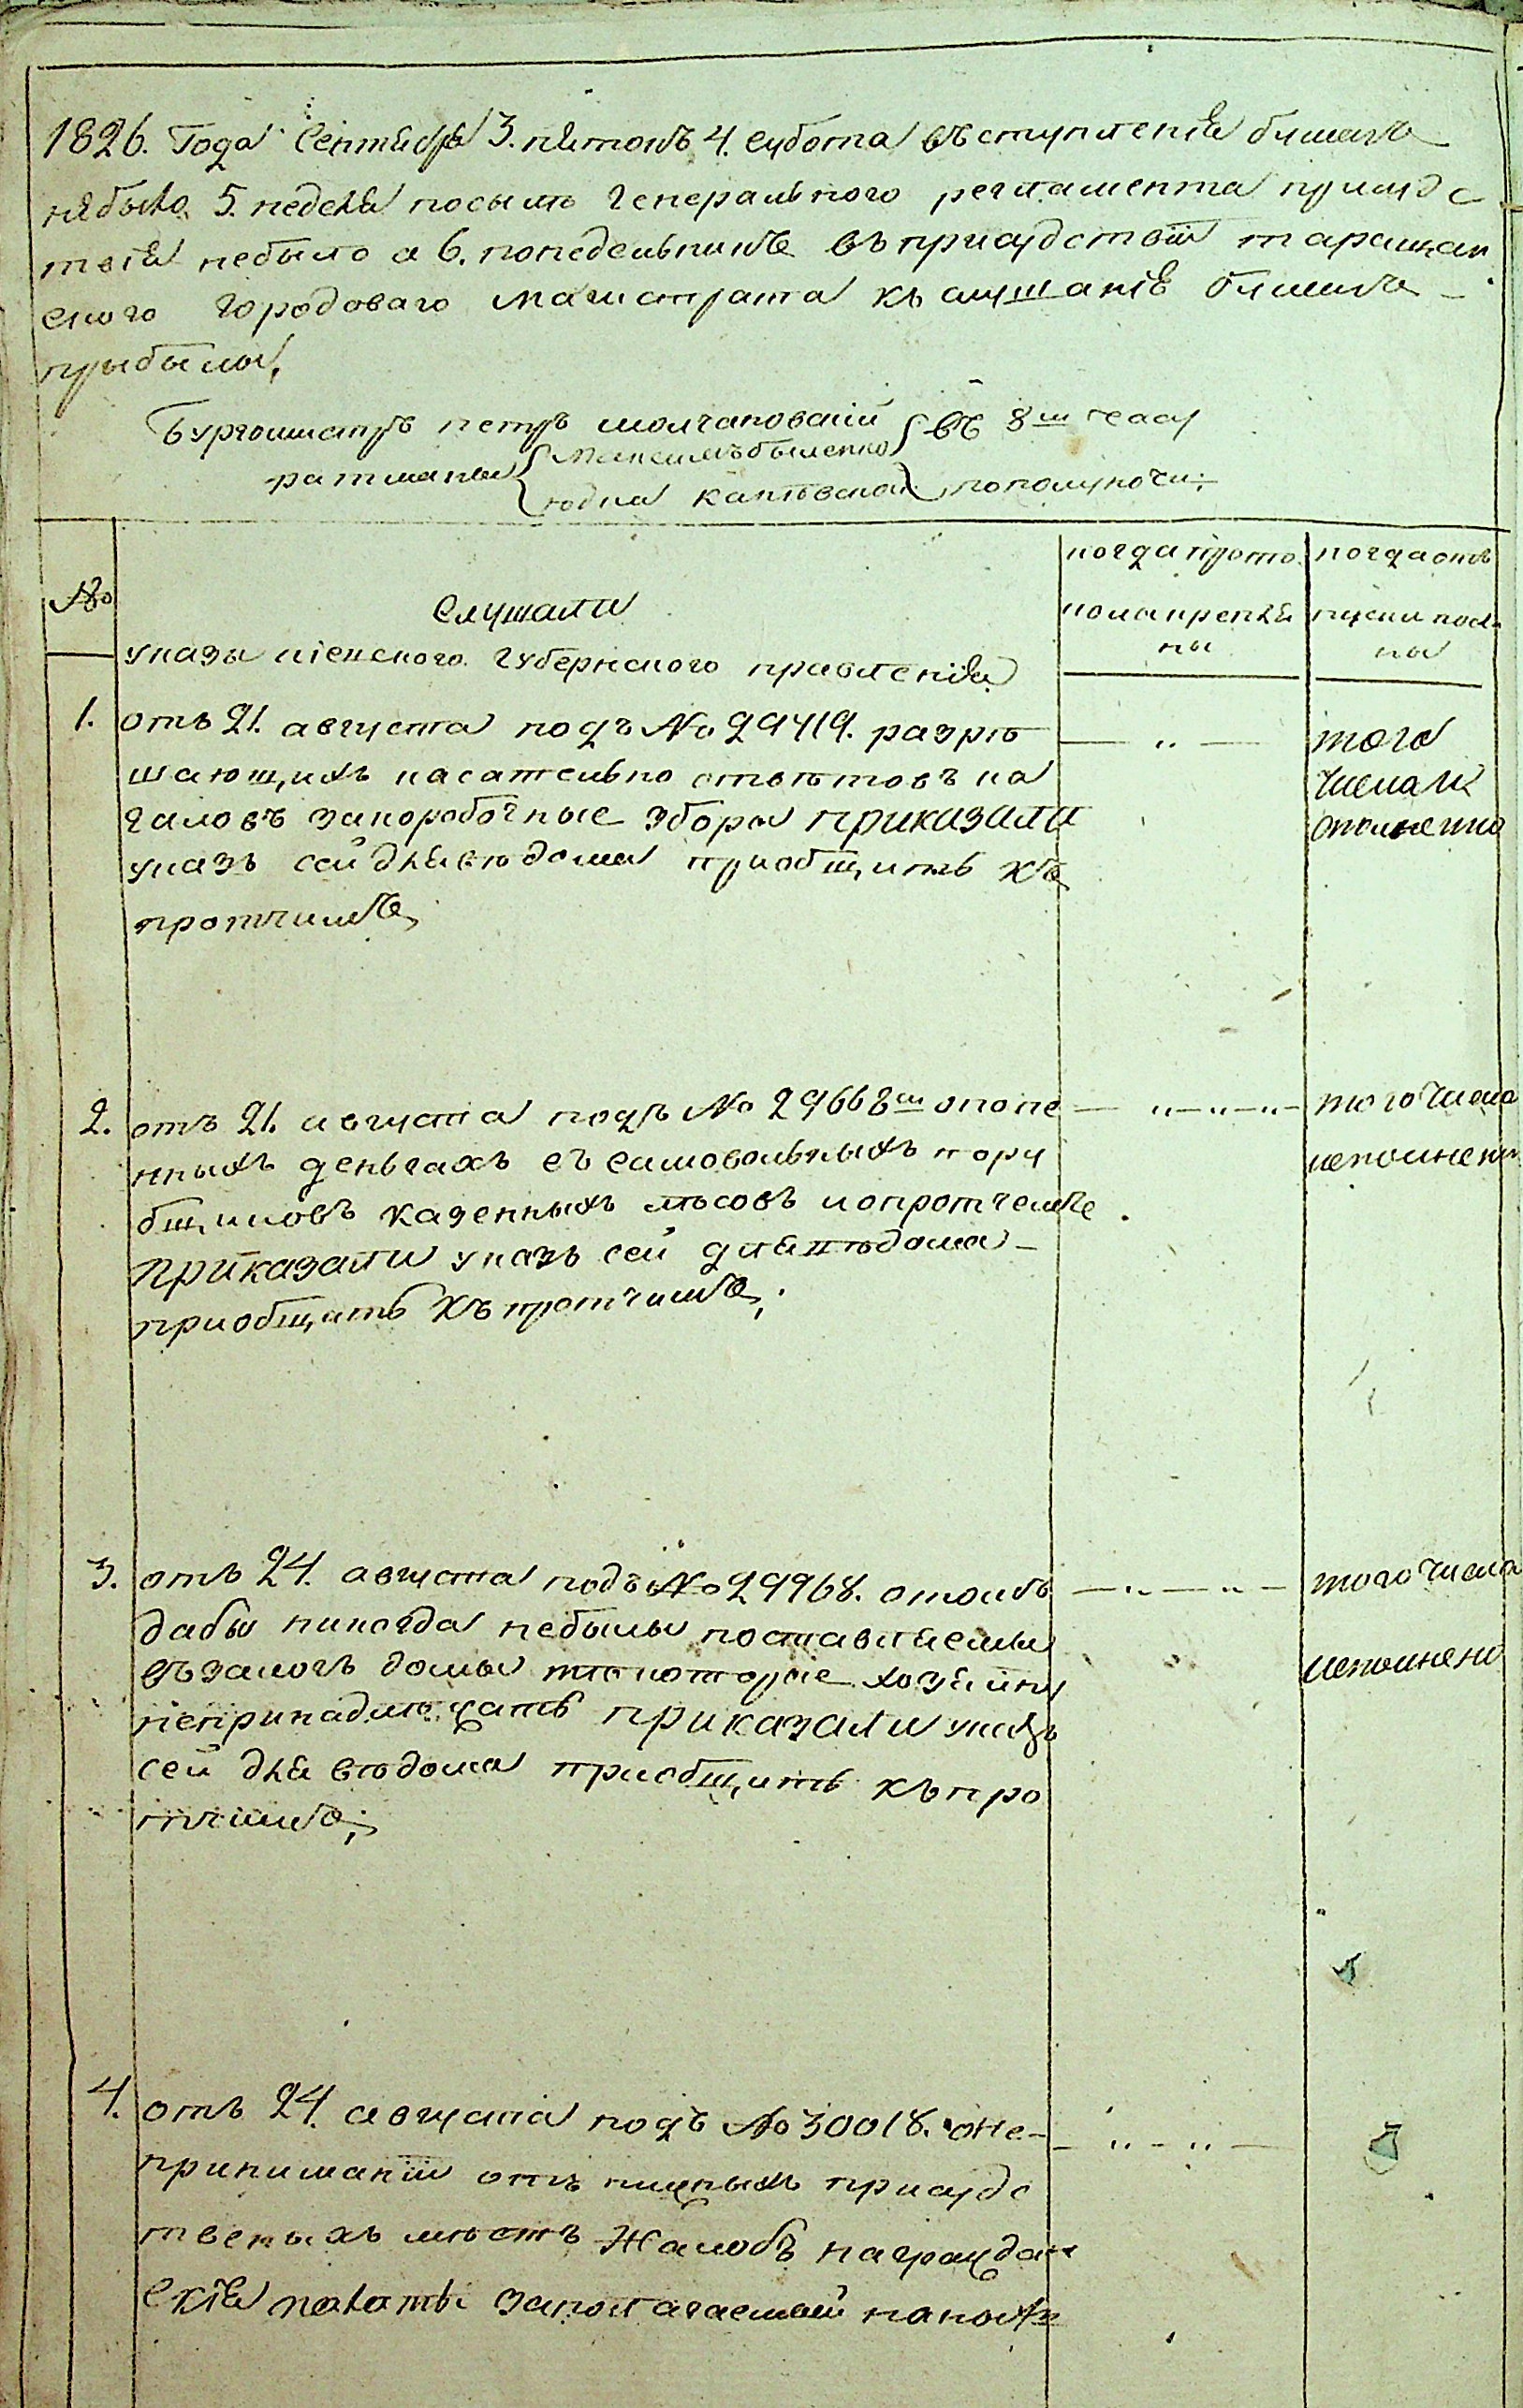 1826. Года Сентября 3. пятокъ 4. субота въступленія бумагъ
небыло. 5. неделя посылѣ Генерального регламента присудс
твія небыло а 6. понедельникъ въ присудствіи таращан
ского городоваго магистрата къ слушанію бумагъ
прыбыли,
Бургомистръ петръ молчановскій въ 8м часу
ратманы Максимъ быленко
пополуночи;
№
Слушали
когда прото
колы крепле
ны
когда отъ
пуски посла
ны
указы кіевского губернского правленія
1. отъ 21. августа подъ № 29419. разрѣ
шающихъ касательно отвѣтовъ ка
галовъ за коробочные зборы приказали
указъ сей для вѣдома приобщить къ
протчимъ,
того
числа ис
полненно
2. отъ 21. августа подъ № 29668м о пене
нныхъ деньгахъ съ самовольныхъ пору
бщиковъ казенныхъ лѣсовъ и о протчемъ
приказали указъ сей для вѣдома
приобщить къ протчимъ;
того числа
исполнено
3. отъ 24. августа подъ № 29968. о томъ
дабы никогда небыли поставляемы
въ залогъ домы кои хозяину
непринадлѣжатъ приказали указъ
сей для вѣдома приобщить къ про
тчимъ;
того числа
исполнено
4. отъ 24. августа подъ № 30018. о не
приниманіи отъ присудс
твеныхъ мѣстъ жалобъ на граждан
скія палаты